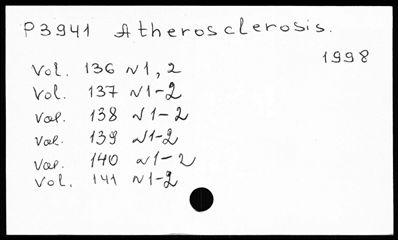 P3941 Atherosclerosis.
1998
Vol. 136 N1, 2
Vol. 137 N1-2
Vol. 138 N1-2
Vol. 139 N1-2
Vol. 140 N1-2
Vol. 141 N1-2